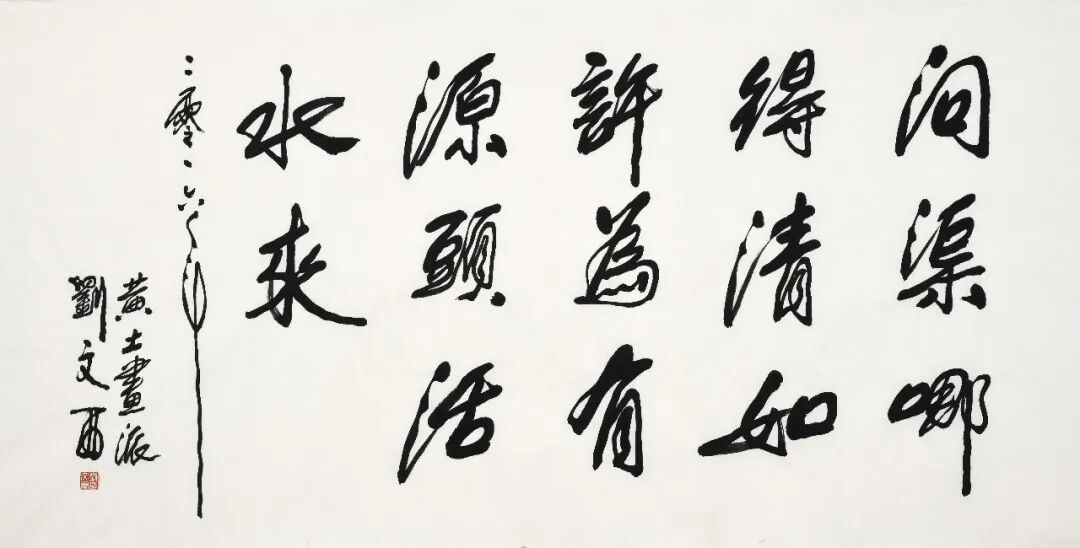 问渠哪
得清如
許為有
源頭活
水來
二零一六年
黄土畫派
劉文西